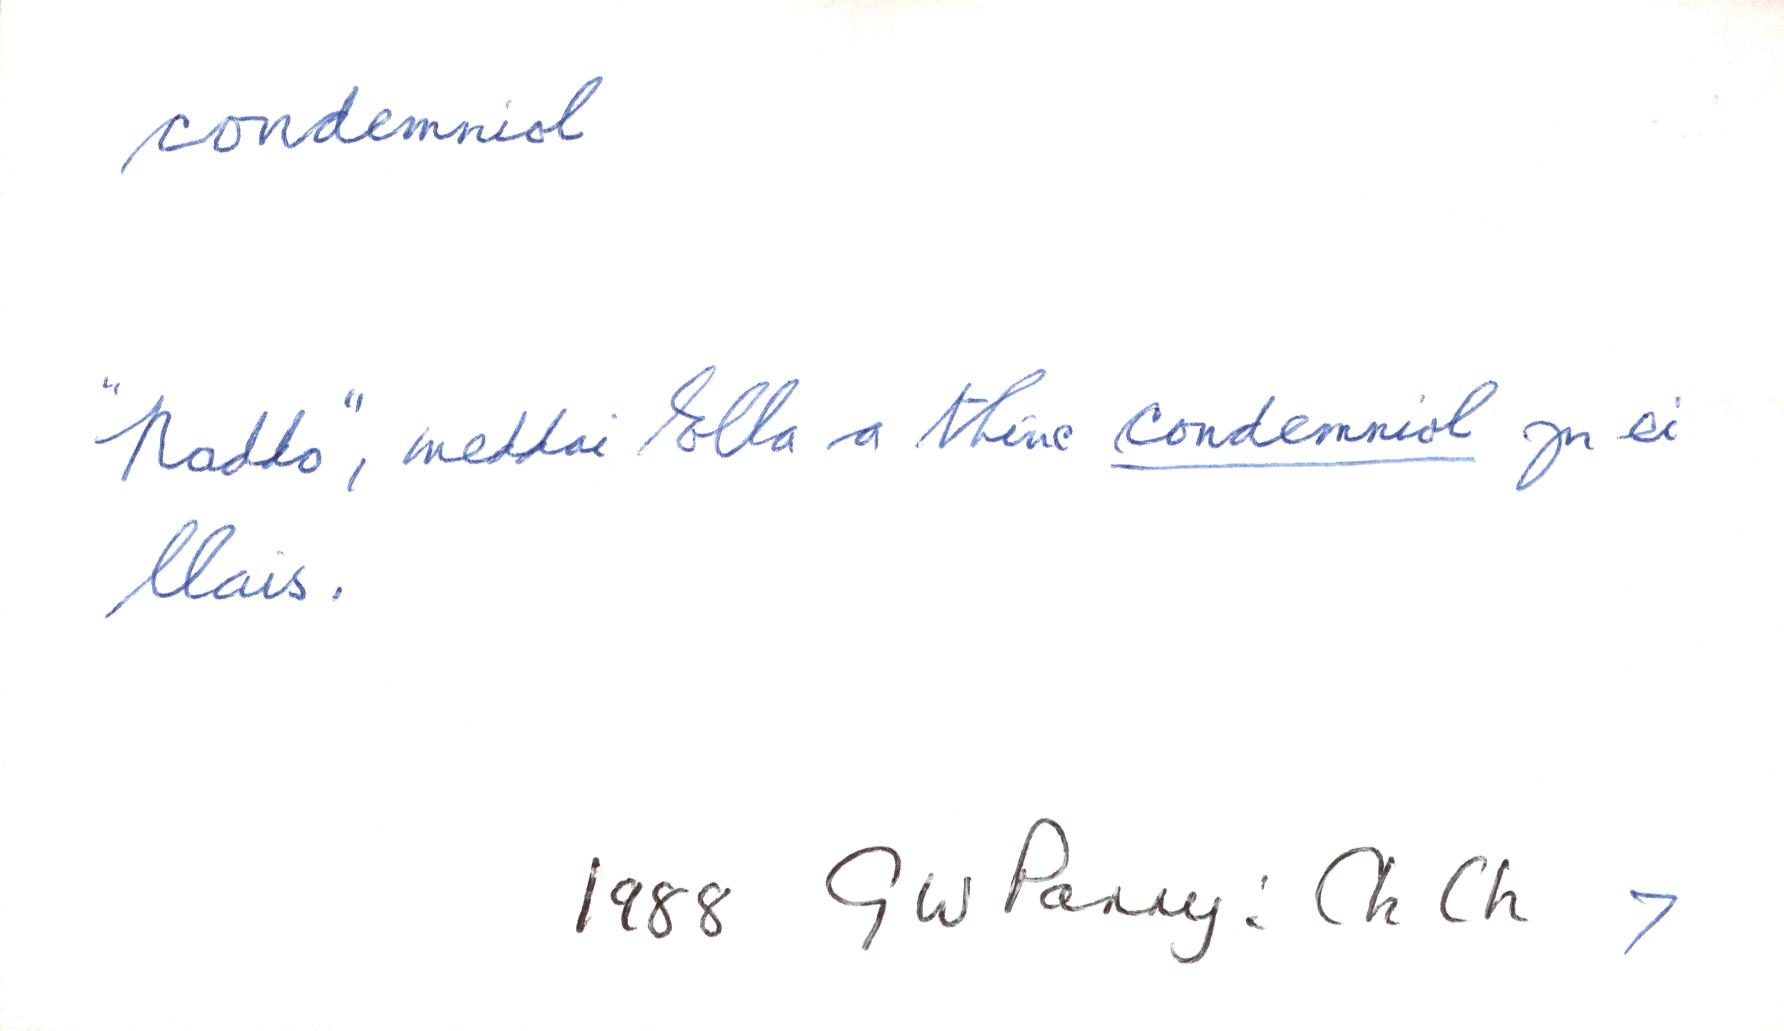 condemniol
"Naddo", meddai Ella a thinc condemniol yn ei
llais.
1988 GW Parry: Ch Ch 7